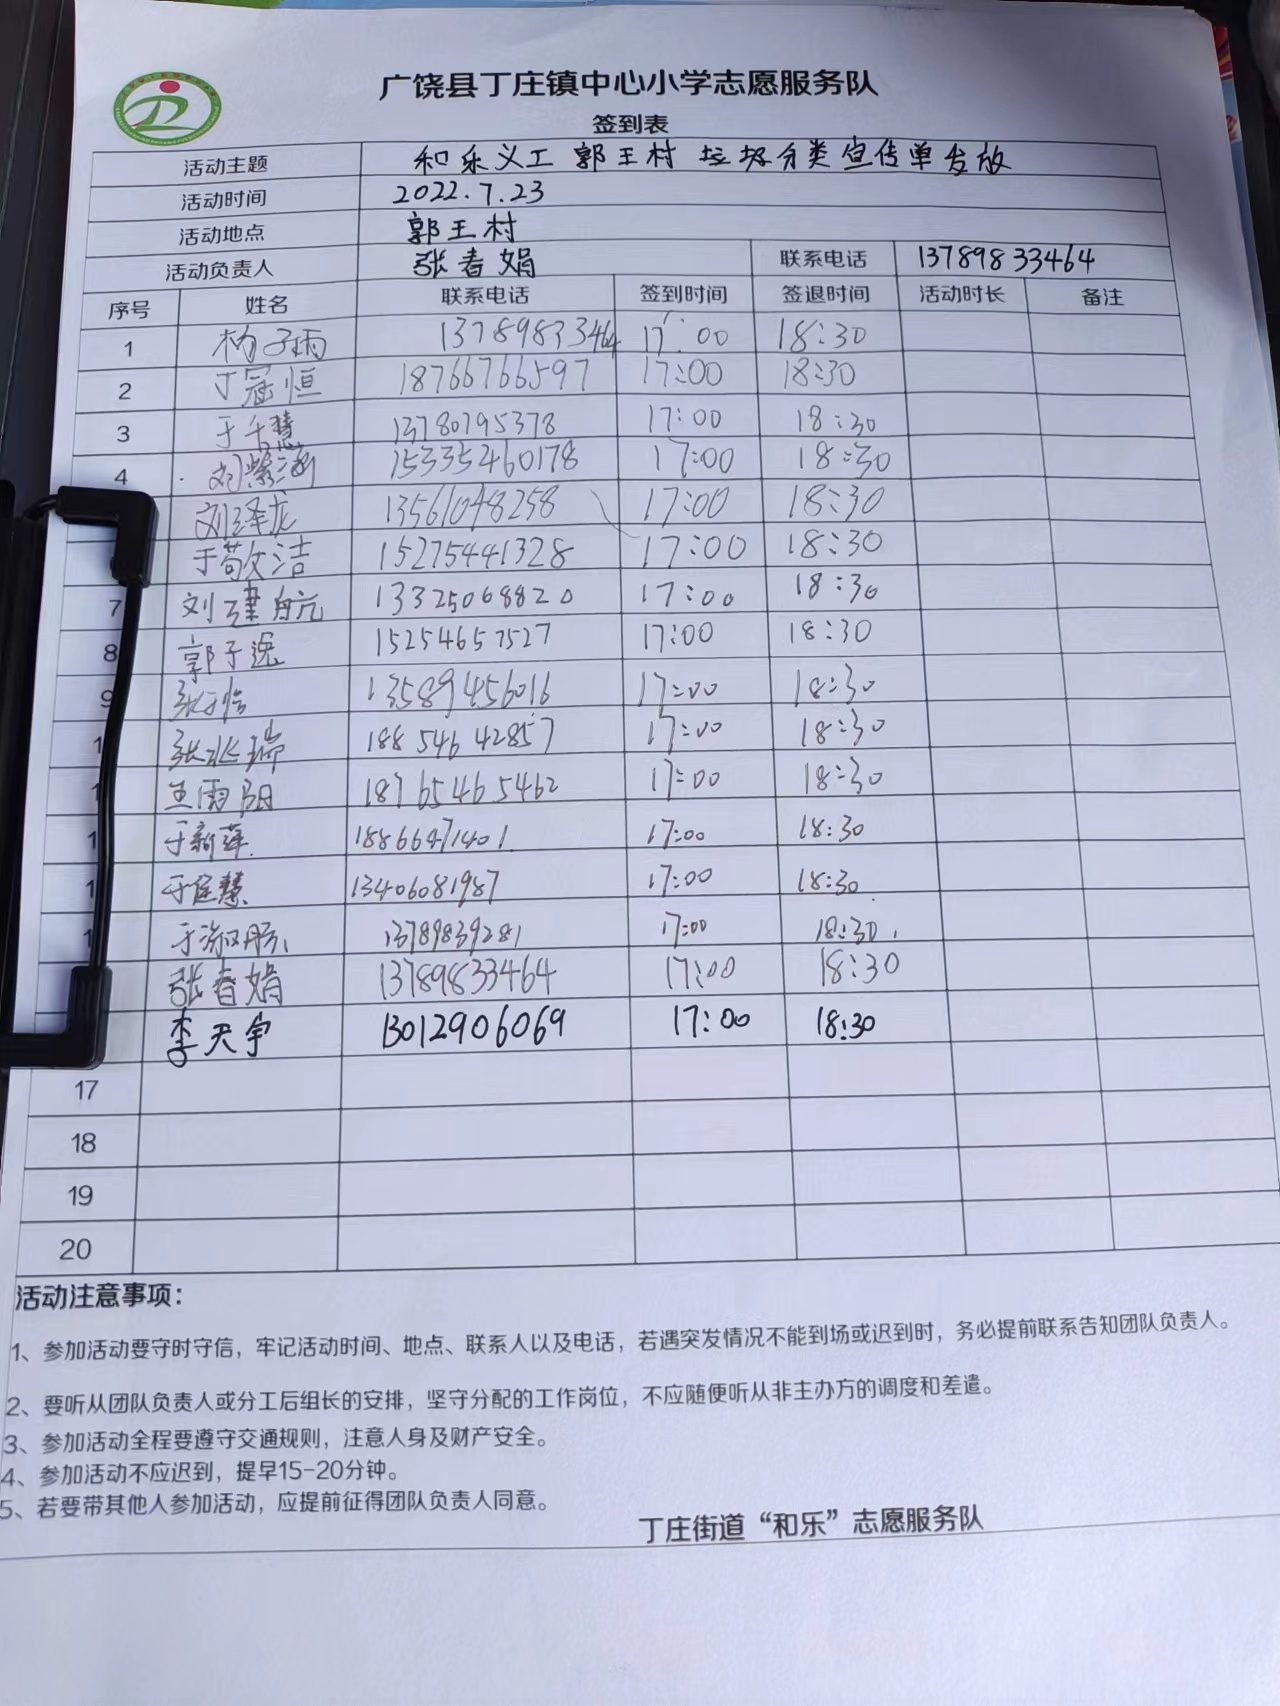 广饶县丁庄镇中心小学志愿服务队
签到表
活动主题 和乐义工 郭王村 垃圾分类宣传单发放
活动时间 2022.7.23
活动地点 郭王村
活动负责人 张春娟 联系电话 13789833464
序号 姓名 联系电话 签到时间 签退时间 活动时长 备注
1 杨子雨 13789833464 17:00 18:30
2 丁冠恒 18766766597 17:00 18:30
3 于千慧 13780795378 17:00 18:30
4 刘紫涵 15335460178 17:00 18:30
刘泽龙 13561048258 17:00 18:30
于敬洁 15275441328 17:00 18:30
7 刘建航 13325068820 17:00 18:30
8 郭子逸 15254657527 17:00 18:30
9 张于怡 13589456016 17:00 18:30
1 张冰瑞 18854642857 17:00 18:30
1 王雨阳 18765465462 17:00 18:30
1 于新萍 18866471401 17:00 18:30
1 于佳慧 13406081987 17:00 18:30
1 于淑彤 13789839281 17:00 18:30
张春娟 13789833464 17:00 18:30
李天宇 13012906069 17:00 18:30
17
18
19
20
活动注意事项：
1、参加活动要守时守信，牢记活动时间、地点、联系人以及电话，若遇突发情况不能到场或迟到时，务必提前联系告知团队负责人。
2、要听从团队负责人或分工后组长的安排，坚守分配的工作岗位，不应随便听从非主办方的调度和差遣。
3、参加活动全程要遵守交通规则，注意人身及财产安全。
4、参加活动不应迟到，提早15-20分钟。
5、若要带其他人参加活动，应提前征得团队负责人同意。
丁庄街道“和乐”志愿服务队